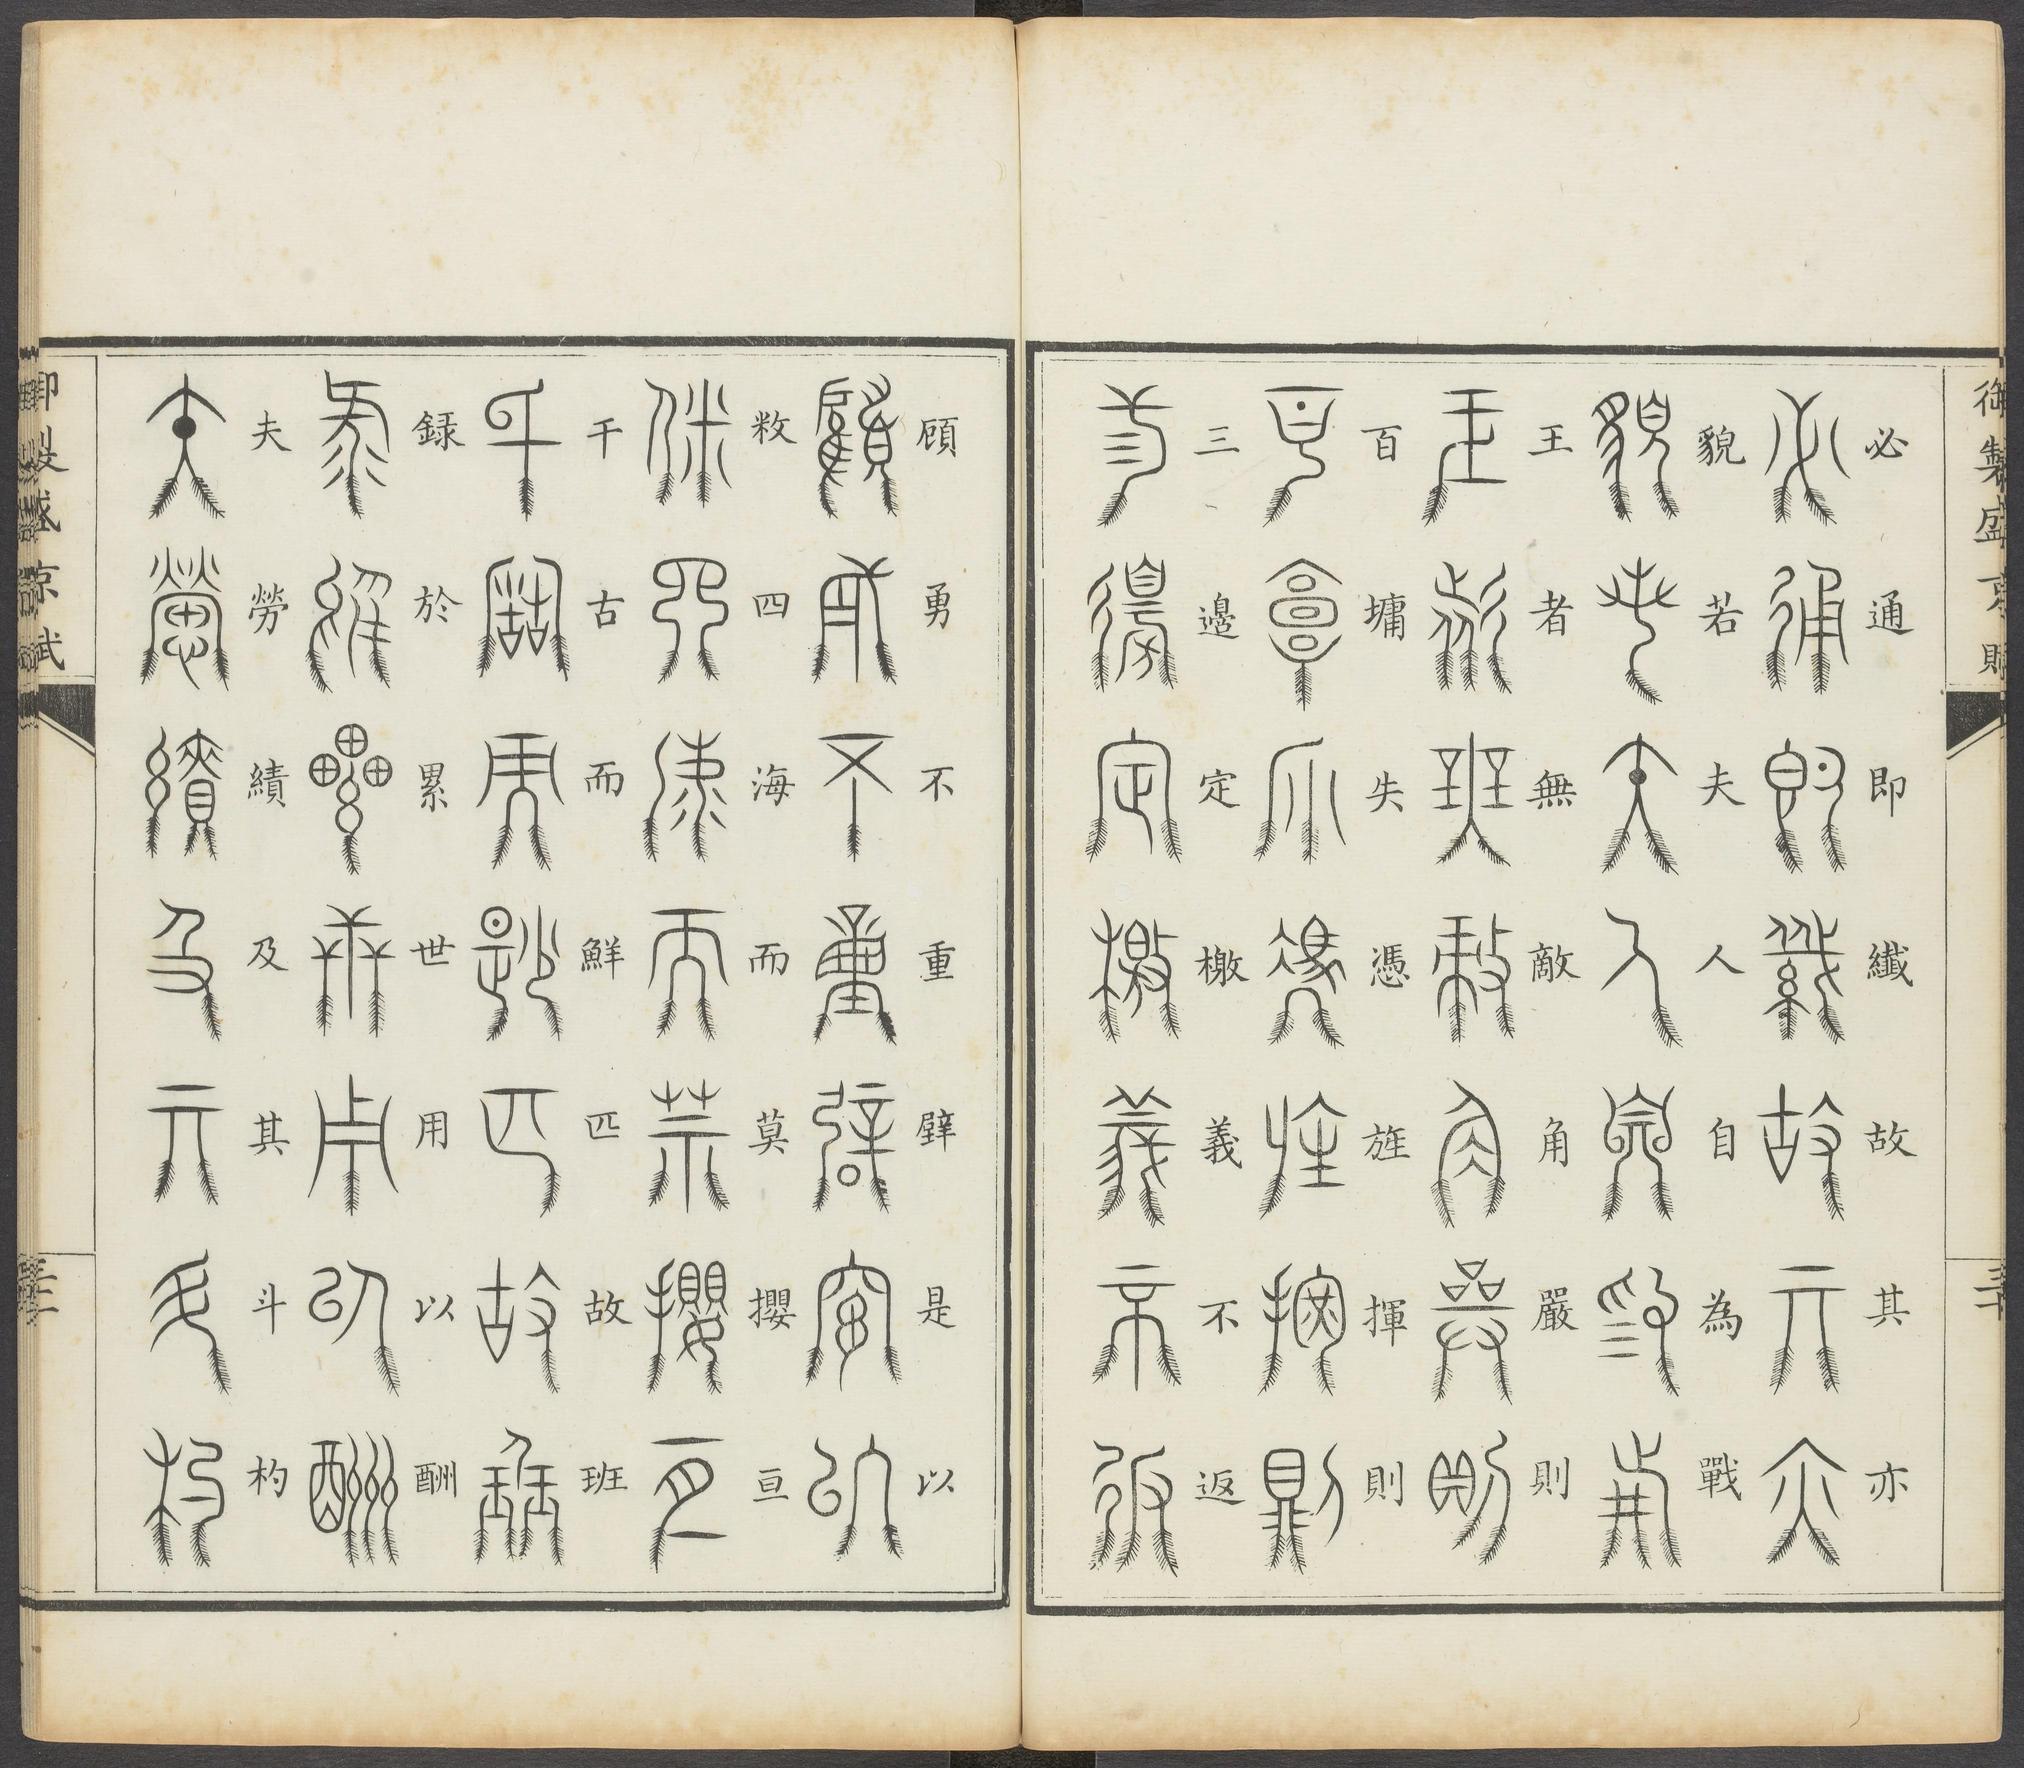 御製盛京賦
必通即纖故其亦
貌若夫人自為戰
王者無敵角嚴則
百墉失憑旌揮則
三邊定檄義不返
顧勇不重臂是以
敉四海而莫攖亘
千古而鮮匹故班
録於累世用以酬
夫勞績及其斗杓
御製盛京賦